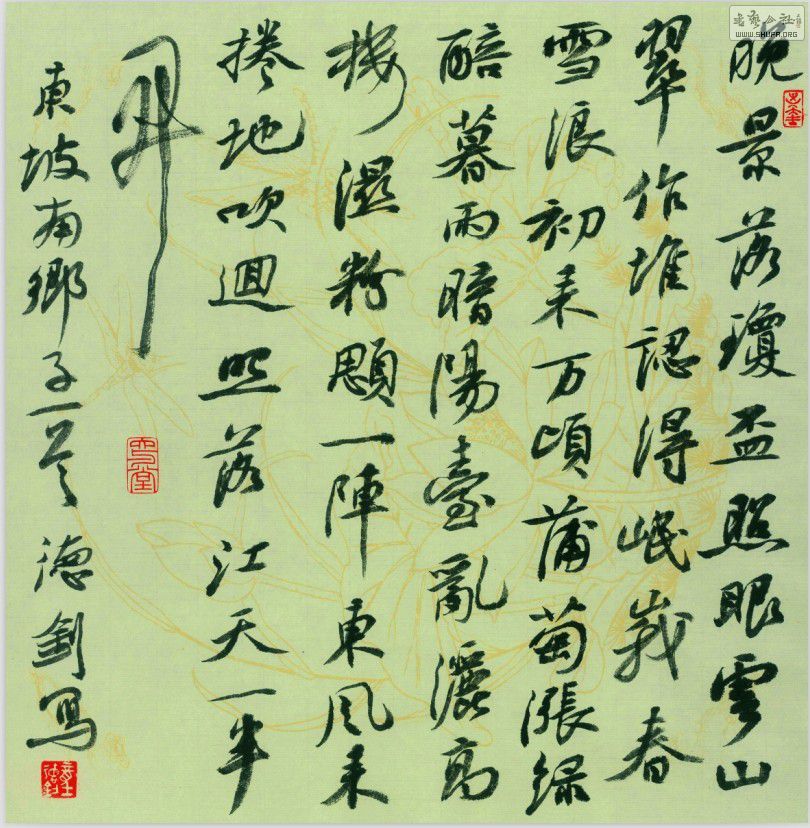 晚景落瓊盃照眼雲山
翠作堆認得岷峩春
雪浪初来万頃蒲萄漲綠
醅暮雨暗陽臺亂灑高
樓濕粉顋一陣東風来
捲地吹迴照落江天一半
開
東坡南鄉子一首 德釗写
书艺公社
WWW.SHUFA.ORG